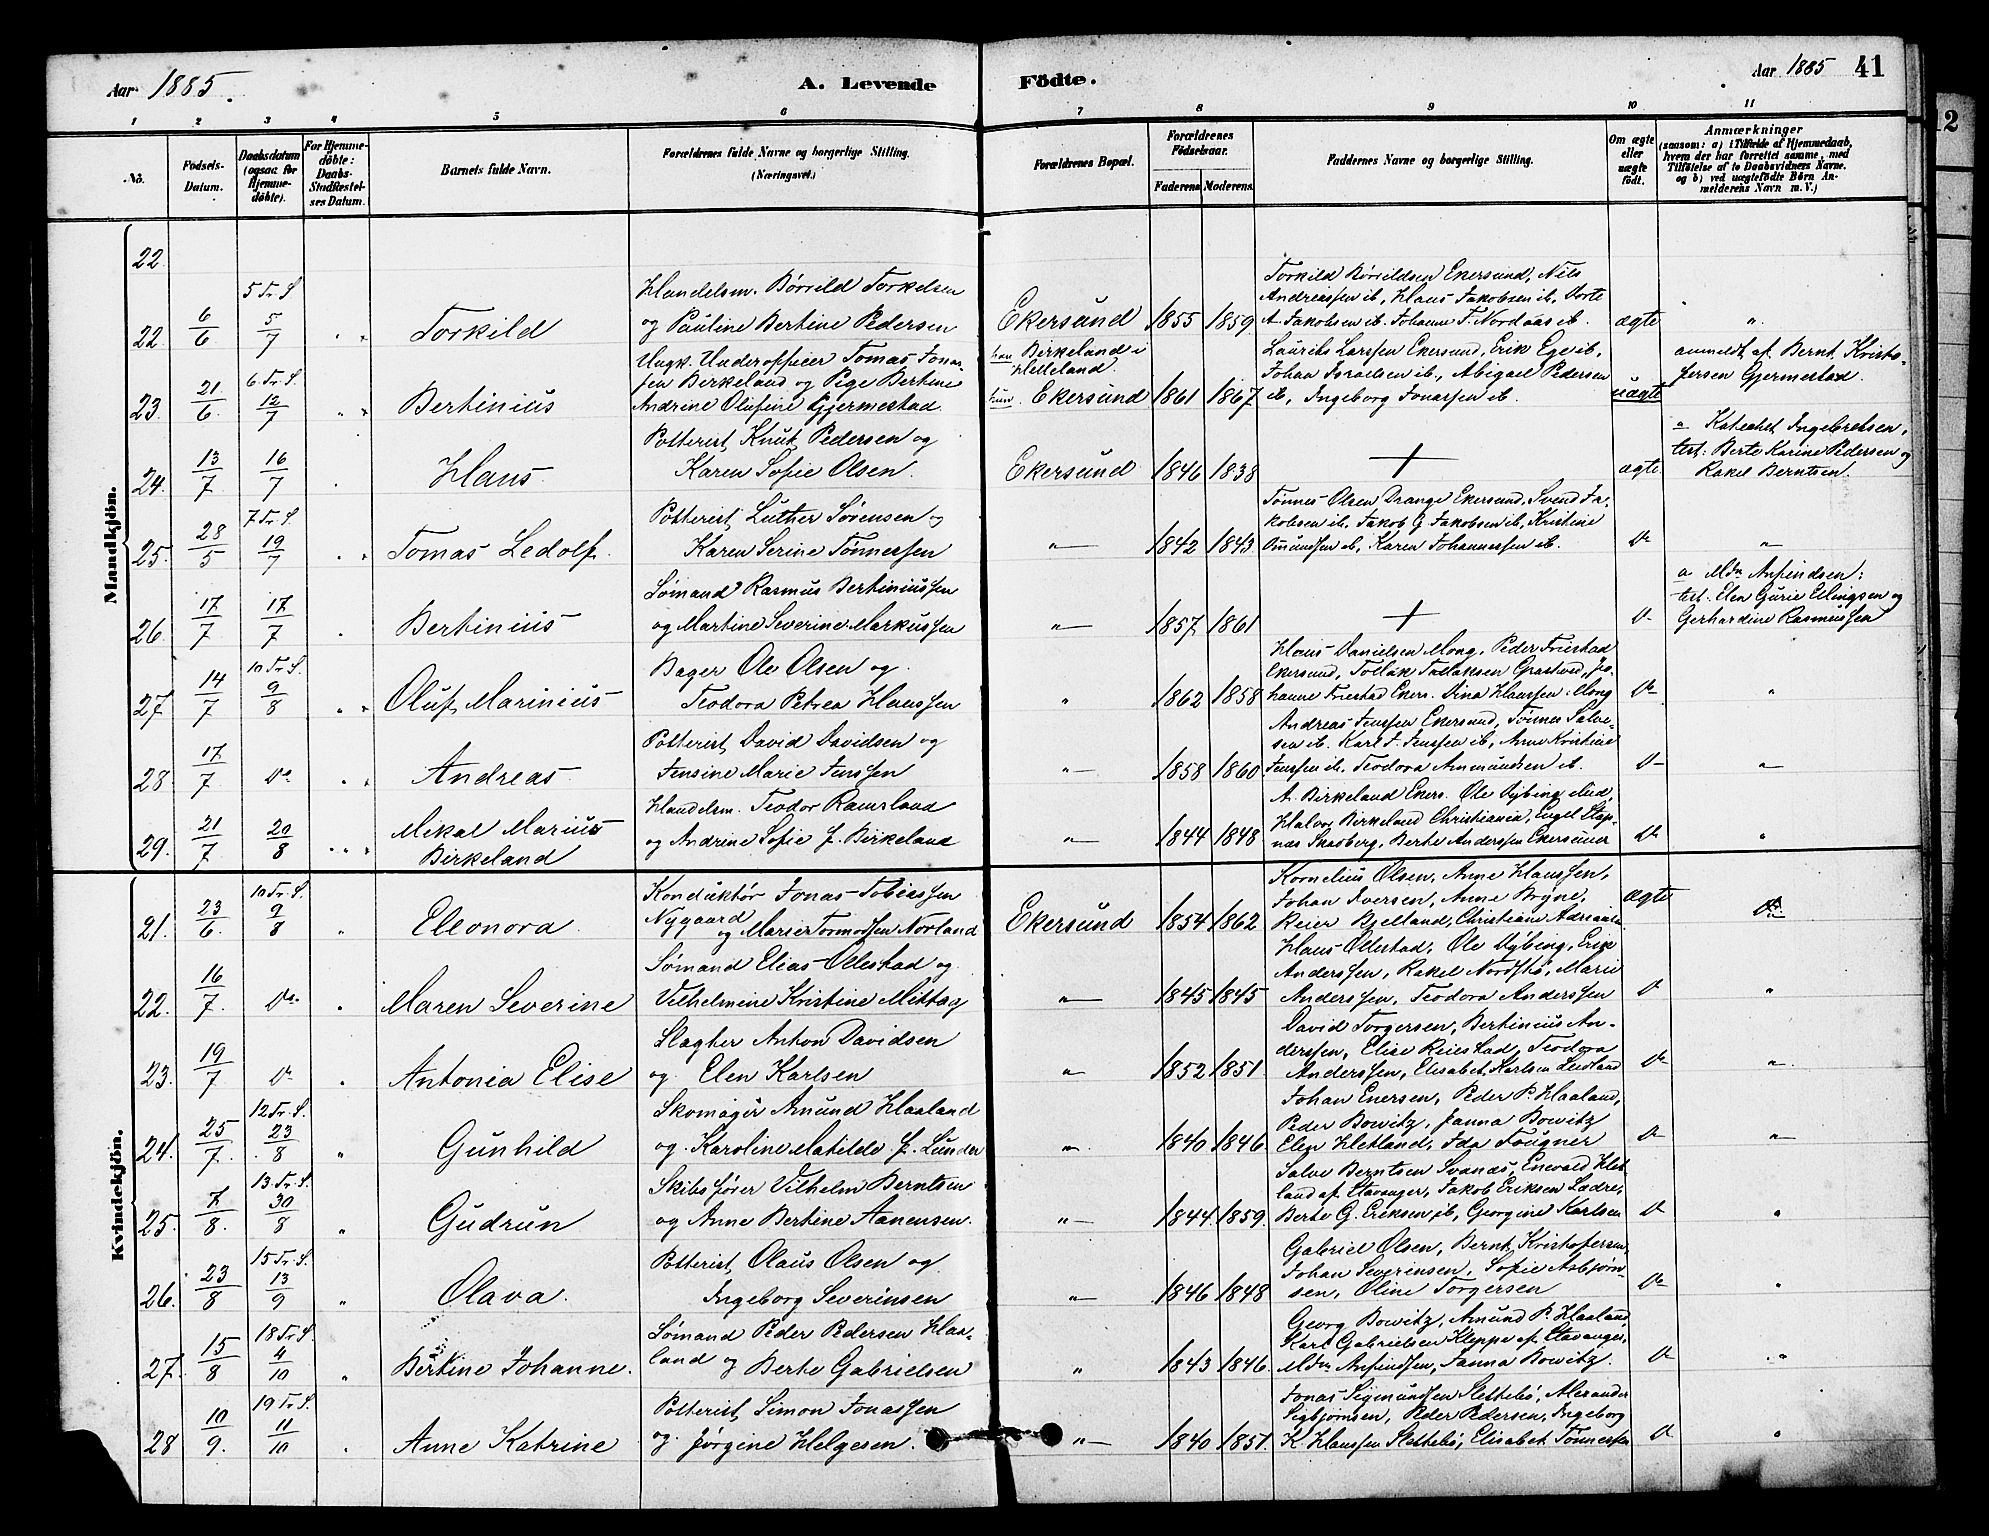 Aar 1885.
A. Levende
Födte.
Aar 1885 41
1 2 3 4 5 6 7 8 9 10 11
No.
Födsels-Datum.
Daabsdatum (ogsaa for Hjemmedöbte).
For Hjemmedöbte: Daabs-Stadfestelses Datum.
Barnets fulde Navn.
Forældrenes fulde Navne og borgerlige Stilling. (Næringsvei.)
Forældrenes Bopæl.
Forældrenes Födselsaar.
Faderens. Moderens.
Faddernes Navne og borgerlige Stilling.
Om ægte eller uægte födt.
Anmærkninger
(saasom: a) i Tilfælde af Hjemmedaab,
hvem der har forrettet samme, med
Tilföielse af to Daabsvidners Navne.
og b) ved uægtefödte Börn An-
melderens Navn m. V.)
Mandkjön.
22.
22. 6/6 5 Tr. S. 5/7 " " Torkild
Handelsm. Börrild Torkelsen
og Pauline Bertine Pedersen
Ekersund 1855 1859
Torkild Börrildsen Ekersund, Nils
Andreassen ib, Hans Jakobsen ib, Dorte
A. Jakobsen ib. Johanne T. Nordaas ib.
ægte "
23. 21/6 6 Tr. S. 12/7 " " Bertinius
Ungk. Underofficer Tomas Jonas-
sen Birkeland og Pige Bertine
Andrine Olufine Gjermestad
han Birkeland i
Helleland.
hun Ekersund 1861 1867
Laurits Larssen Ekersund, Erik Ege ib,
Johan Israelsen ib., Abigael Pedersen
ib, Ingeborg Jonassen ib.
uægte
anmeldt af Bernt Kristo-
fersen Gjermestad.
24. 13/7 16/7 " Hans
Potterist Knut Pedersen og
Karen Sofie Olsen.
Ekersund 1846 1838 + ægte
a Katechet Ingebretsen,
test: Berte Karine Pedersen og
Rakel Berntsen.
25. 28/5 7 Tr. S. 19/7 " " Tomas Ledolf.
Potterist Luther Sørensen og
Karen Serine Tønnessen
" 1842 1843
Tønnes Olsen Drange Ekersund, Svend Ja-
kobsen ib, Jakob G. Jakobsen ib, Kristine
Omundsen ib, Karen Johannessen ib.
Do "
26. 17/7 17/7 " Bertinius
Sømand Rasmus Bertiniussen
og Martine Severine Markussen
" 1857 1861 + Do
a Mdm Anfindsen:
test. Elen Gurie Ellingsen og
Gerhardine Rasmussen
27. 14/7 10 Tr. S. 9/8 " " Oluf Marinius
Bager Ole Olsen og
Teodora Petrea Hanssen
" 1862 1858
Hans Danielsen Mong, Peder Friestad
Ekersund, Tollak Tollaksen Grastveid, Jo-
hanne Friestad Ekers. Stina Hanssen: Mong
Do "
28. 17/7 Do " " Andreas
Potterist David Davidsen og
Jensine Marie Jenssen
" 1858 1860
Andreas Jenssen Ekersund, Tønnes Salve-
sen ib. Karl J. Jenssen ib, Anne Kristine
Jenssen ib. Teodora Amundsen ib.
Do "
29. 21/7 20/8 " " " Mikal Marius
Birkeland
Handelsm. Teodor Ramsland
og Andrine Sofie f. Birkeland
" 1844 1848
A. Birkeland Ekers. Ole Dybing ibid,
Halvor Birkeland Christiania, Engel Stap-
næs Skadberg, Berte Anderssen Ekersund
Do "
Kvindekjön.
21. 23/6 10 Tr. S. 9/8 " Eleonora
Konduktør Jonas Tobiassen
Nygaard
og Marie Tormodsen Norland
Ekersund 1854 1862
Kornelius Olsen, Anne Hanssen,
Johan Iversen, Anne Bryne,
Reier Bjelland, Christiane Adriansen
ægte
22. 16/7 Do " Maren Severine
Sømand Elias Ollestad og
Vilhelmine Kristine Mittag
" 1845 1845
Hans Ollestad, Ole Dybing, Erik
Anderssen, Rakel Nordsbø, Marie
Anderssen, Teodora Anderssen
Do "
23. 19/7 Do " Antonia Elise
Slagter Anton Davidsen
og Elen Karlsen
" 1852 1851
David Torgersen, Bertinius An-
derssen, Elise Reiestad, Teodora
Anderssen, Elisabet Karlsen Leidland
Do "
24. 25/7 12 Tr. S. 23/8 " Gunhild
Skomager Amund Haaland
og Karoline Matilde f. Lunder
" 1840 1846
Johan Enersen, Peder P. Haaland,
Peder Bowitz, Janna Bowitz
Elen Hetland, Ida Fougner
Do "
25. 7/8 13 Tr. S. 30/8 " Gudrun
Skibsfører Vilhelm Berntsen
og Anne Bertine Aanensen.
" 1844 1859
Salve Berntsen Svanæs, Enevald Het-
land af Stavanger, Jakob Eriksen Lædre,
Berte G. Eriksen ib, Georgine Karlsen
Do "
26. 23/8 15 Tr. S. 13/9 " Olava
Potterist Olaus Olsen og
Ingeborg Severinsen
" 1846 1848
Gabriel Olsen, Bernt Kristofersen,
Johan Severinsen, Sofie Asbjørn-
sen, Oline Torgersen
Do "
27. 15/8 18 Tr. S. 4/10 " Bertine Johanne.
Sømand Peder Pedersen Haa-
land og Berte Gabrielsen
" 1843 1846
Georg Bowitz, Amund P. Haaland,
Karl Gabrielsen Kleppe af Stavanger,
Mdm Anfindsen, Janna Bowitz.
Do "
28 10/9 19 Tr. S. 11/10 " Anne Katrine
Potterist Simon Jonassen
og Jørgine Helgesen.
" 1840 1851
Jonas Sigmundsen Slettebø, Alexander
Sigbjørnsen, Peder Pedersen, Ingeborg
K. Hanssen Slettebø, Elisabet Tønnessen
Do "
12